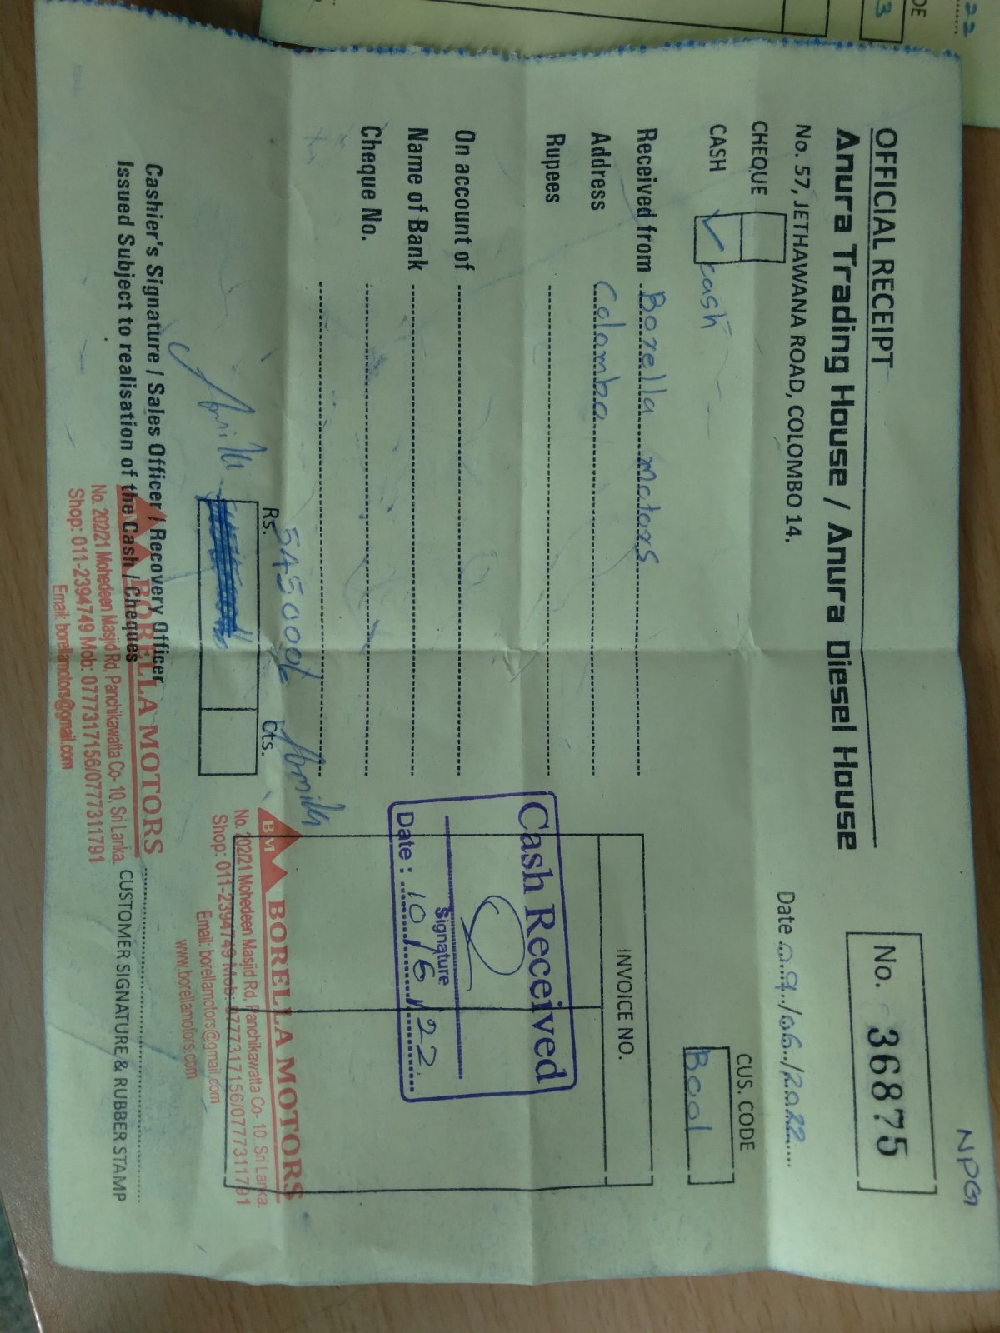 NPG
OFFICIAL RECEIPT
No. 36875
Anura Trading House / Anura Diesel House
No. 57, JETHAWANA ROAD, COLOMBO 14.
Date 09/06/2022
CHEQUE
CUS. CODE
CASH ✓ cash
B001
Received from Borella motors
INVOICE NO.
Address Colombo
Rupees
Cash Received
Signature
Date : 10/6/22
On account of
Name of Bank
Cheque No.
545000/-
Rs. Cts.
BM BORELLA MOTORS
No. 202/21 Mohedeen Masjid Rd, Panchikawatta Co- 10, Sri Lanka.
Shop: 011-2394749 Mob: 0777317156/0777311791
Email: borellamotors@gmail.com
www.borellamotors.com
Cashier's Signature / Sales Officer / Recovery Officer
Issued Subject to realisation of the Cash / Cheques
CUSTOMER SIGNATURE & RUBBER STAMP
BORELLA MOTORS
No. 202/21 Mohedeen Masjid Rd, Panchikawatta Co- 10, Sri Lanka.
Shop: 011-2394749 Mob: 0777317156/0777311791
Email: borellamotors@gmail.com